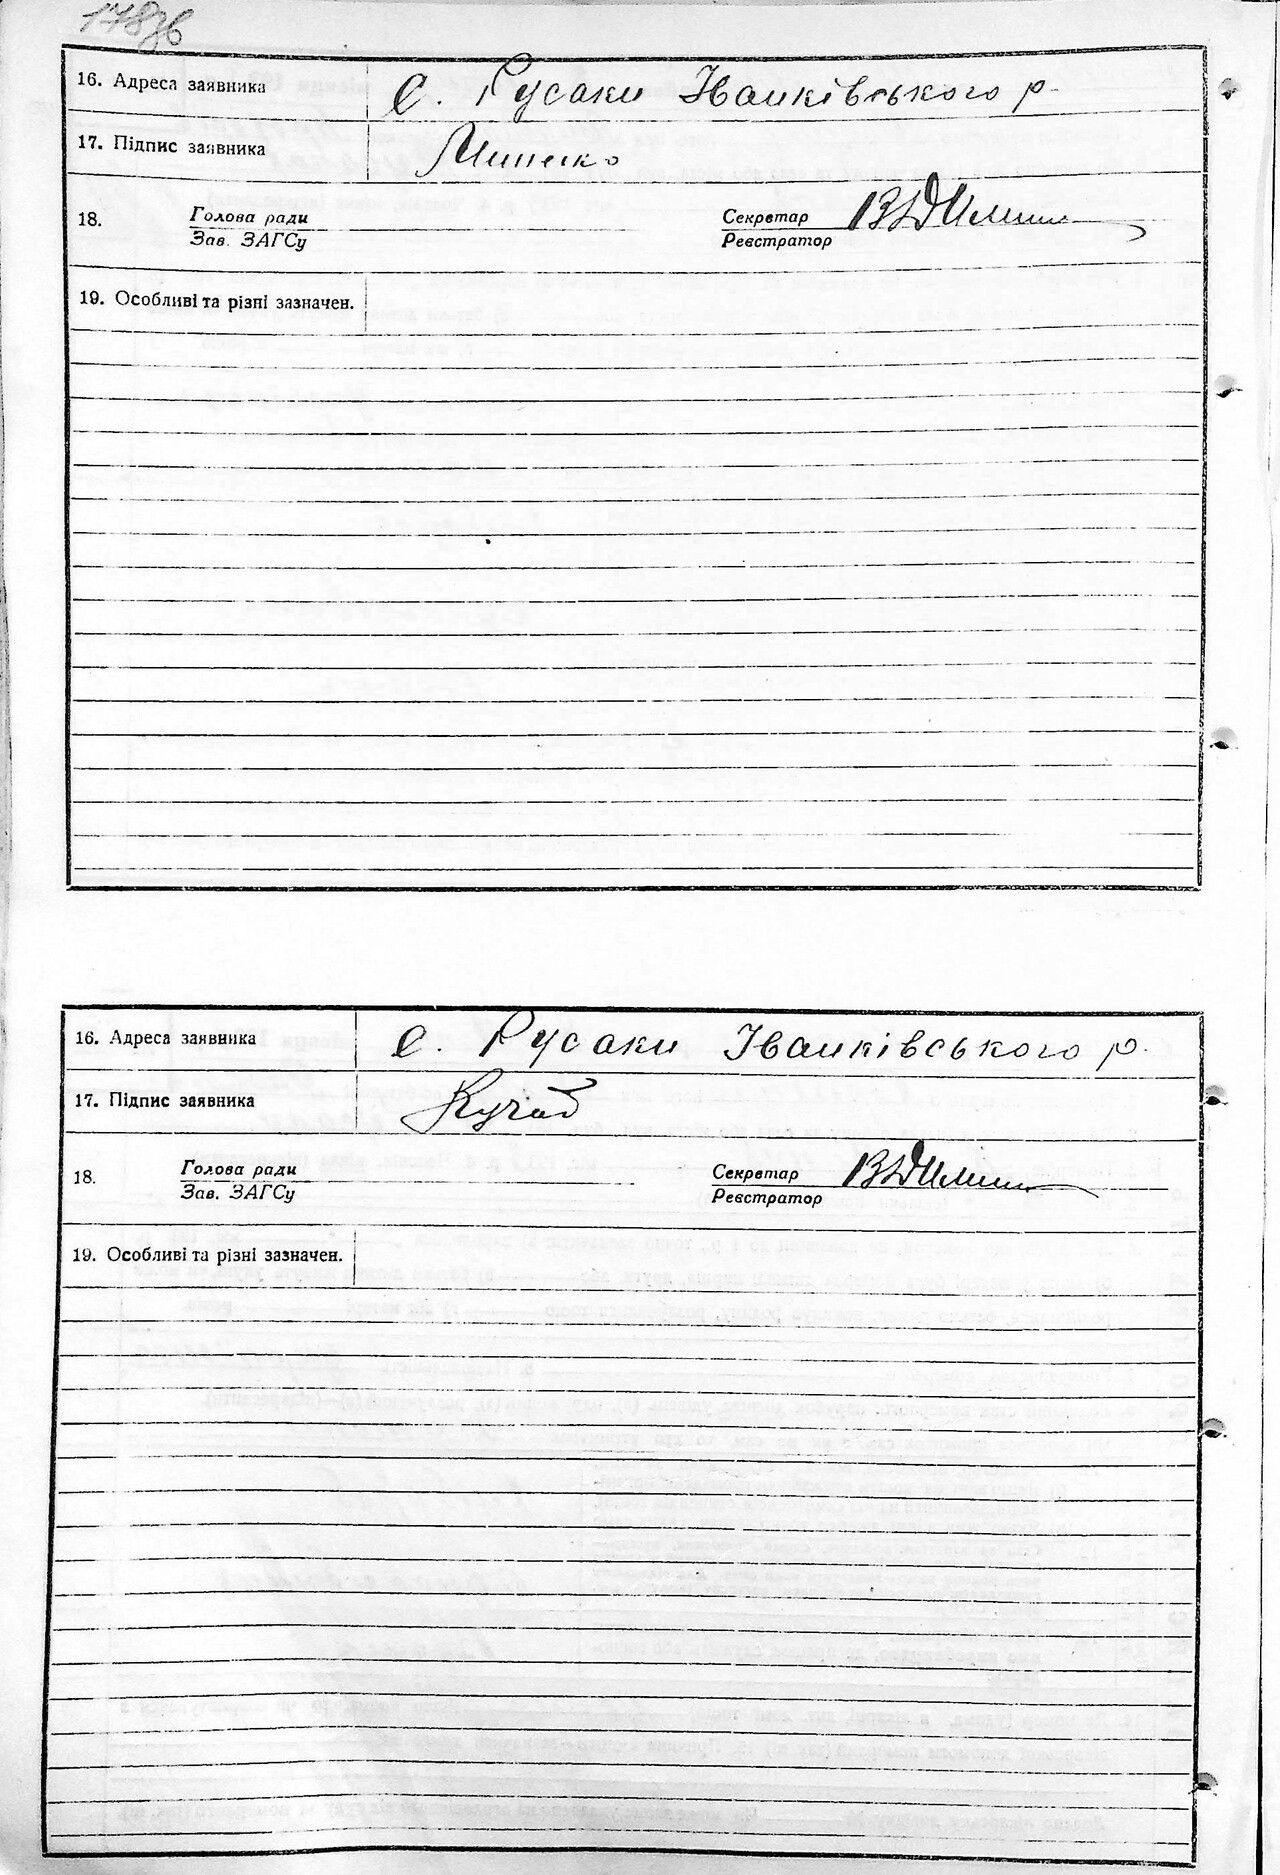 178зв
16. Адреса заявника с. Русаки Іванківського р.
17. Підпис заявника Миненко
18. Голова ради Секретар
Зав. ЗАГСу Реєстратор
19. Особливі та різні зазначен.
16. Адреса заявника с. Русаки Іванківського р.
17. Підпис заявника Кучаб
18. Голова ради Секретар
Зав. ЗАГСу Реєстратор
19. Особливі та різні зазначен.